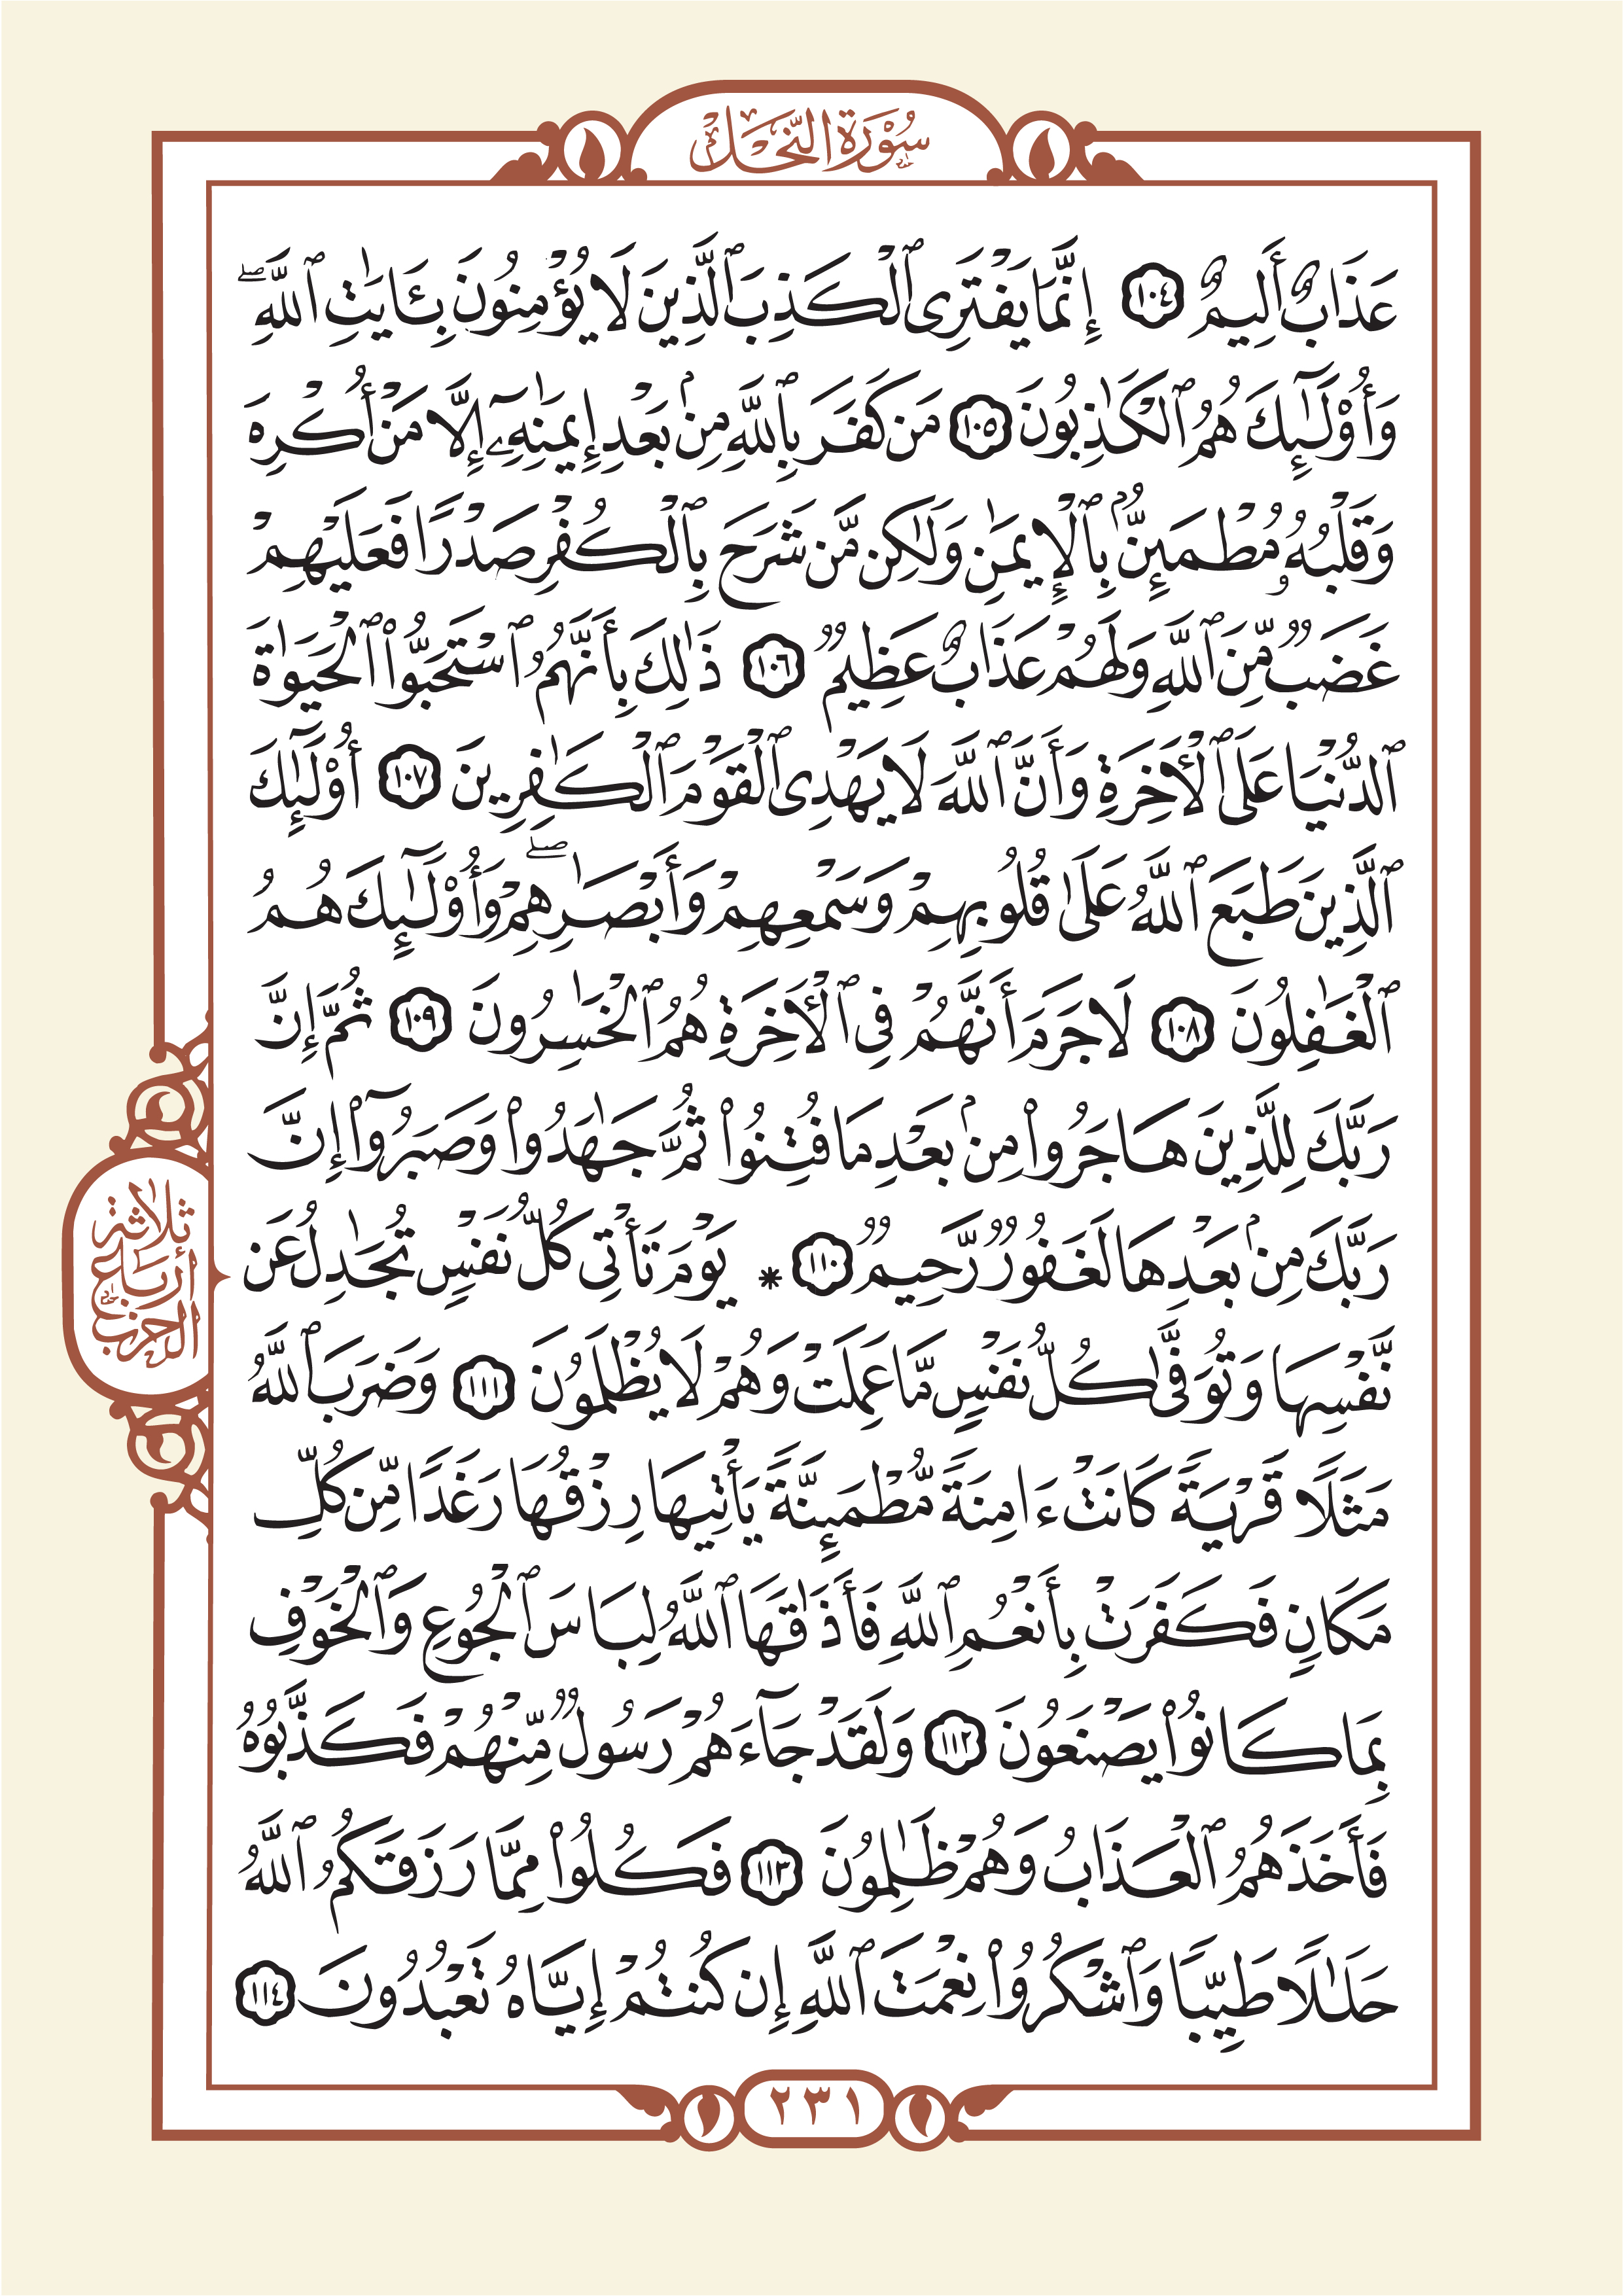 سُورَةُ النَّحْلِ
عَذَابٌ أَلِيمٌ ١٠٤ إِنَّمَا يَفْتَرِى ٱلْكَذِبَ ٱلَّذِينَ لَا يُؤْمِنُونَ بِـَٔايَٰتِ ٱللَّهِۖ
وَأُوْلَٰٓئِكَ هُمُ ٱلْكَٰذِبُونَ ١٠٥ مَن كَفَرَ بِٱللَّهِ مِنۢ بَعْدِ إِيمَٰنِهِۦٓ إِلَّا مَنْ أُكْرِهَ
وَقَلْبُهُۥ مُطْمَئِنُّۢ بِٱلْإِيمَٰنِ وَلَٰكِن مَّن شَرَحَ بِٱلْكُفْرِ صَدْرًا فَعَلَيْهِمْ
غَضَبٌ مِّنَ ٱللَّهِ وَلَهُمْ عَذَابٌ عَظِيمٌ ١٠٦ ذَٰلِكَ بِأَنَّهُمُ ٱسْتَحَبُّوا۟ ٱلْحَيَوٰةَ
ٱلدُّنْيَا عَلَى ٱلْأَخِرَةِ وَأَنَّ ٱللَّهَ لَا يَهْدِى ٱلْقَوْمَ ٱلْكَٰفِرِينَ ١٠٧ أُوْلَٰٓئِكَ
ٱلَّذِينَ طَبَعَ ٱللَّهُ عَلَىٰ قُلُوبِهِمْ وَسَمْعِهِمْ وَأَبْصَٰرِهِمْۖ وَأُوْلَٰٓئِكَ هُمُ
ٱلْغَٰفِلُونَ ١٠٨ لَا جَرَمَ أَنَّهُمْ فِى ٱلْأَخِرَةِ هُمُ ٱلْخَٰسِرُونَ ١٠٩ ثُمَّ إِنَّ
رَبَّكَ لِلَّذِينَ هَاجَرُوا۟ مِنۢ بَعْدِ مَا فُتِنُوا۟ ثُمَّ جَٰهَدُوا۟ وَصَبَرُوٓا۟ إِنَّ
رَبَّكَ مِنۢ بَعْدِهَا لَغَفُورٌ رَّحِيمٌ ١١٠ * يَوْمَ تَأْتِى كُلُّ نَفْسٍ تُجَٰدِلُ عَن
نَّفْسِهَا وَتُوَفَّىٰ كُلُّ نَفْسٍ مَّا عَمِلَتْ وَهُمْ لَا يُظْلَمُونَ ١١١ وَضَرَبَ ٱللَّهُ
مَثَلًا قَرْيَةً كَانَتْ ءَامِنَةً مُّطْمَئِنَّةً يَأْتِيهَا رِزْقُهَا رَغَدًا مِّن كُلِّ
مَكَانٍ فَكَفَرَتْ بِأَنْعُمِ ٱللَّهِ فَأَذَٰقَهَا ٱللَّهُ لِبَاسَ ٱلْجُوعِ وَٱلْخَوْفِ
بِمَا كَانُوا۟ يَصْنَعُونَ ١١٢ وَلَقَدْ جَآءَهُمْ رَسُولٌ مِّنْهُمْ فَكَذَّبُوهُ
فَأَخَذَهُمُ ٱلْعَذَابُ وَهُمْ ظَٰلِمُونَ ١١٣ فَكُلُوا۟ مِمَّا رَزَقَكُمُ ٱللَّهُ
حَلَٰلًا طَيِّبًا وَٱشْكُرُوا۟ نِعْمَتَ ٱللَّهِ إِن كُنتُمْ إِيَّاهُ تَعْبُدُونَ ١١٤
ثلاثة
أرباع
الحزب
٢٣١